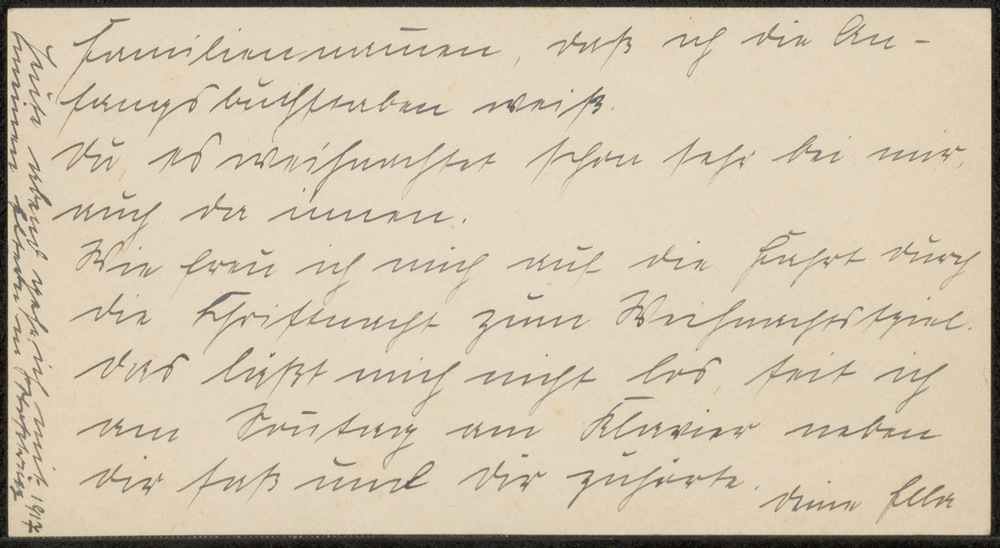 Familiennamen, daß ich die An-
fangsbuchstaben weiß.
Du, es weihnachtet schon sehr bei mir,
auch da innen.
Wie freu ich mich auf die Fahrt durch
die Christnacht zum Weihnachtsspiel.
Das läßt mich nicht los, seit ich
am Sonntag am Klavier neben
dir saß und dir zuhörte.
Deine Ella
Heute abend geh ich mit
meinen Eltern in
1917